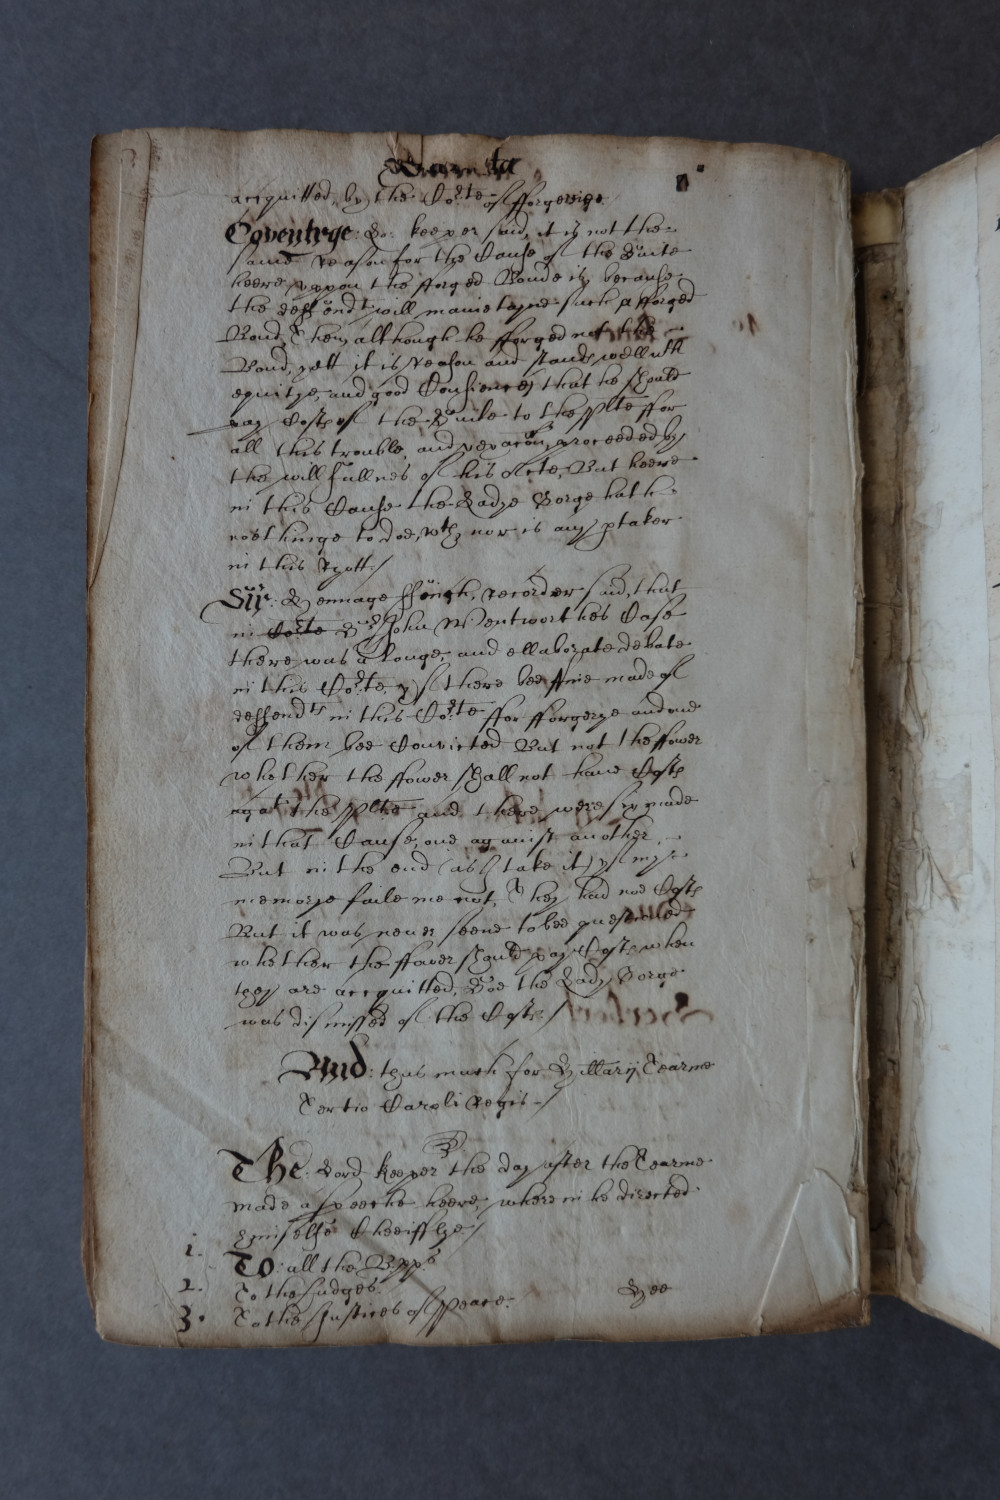 acquitted, by the Co:rte of fforgerige.
Coventrye: Lo: keeper said, it is not the
same reason for the Cause of the Suite
heere, vppon the fforged Bonde is, because
the deffendt will mainetayne such a fforged
Bond, Then although he fforged not the
Bond, yett it is reason and stands well wth
equitye, and good Consience, that he should
pay Costs of the Suite to the plte ffor
all this trouble, and vexacōn, proceeded by
the willfullnes of his Acte, But heere
in this Cause the Ladye Gorge hath
nothinge to doe, wth, nor is any ptaker
in this Ryott /
Sir: Henneage ffinch, recorder said, that
in Co:rte Sr John Wentworthes Case
there was a longe, and ellaborate debate
in this Co:rte, yf there bee ffive made
deffendts in this Co:rte ffor fforgerye and one
of them bee Convicted But not the ffower
whether the ffower shall not have Costs
agat the plte and there were six made
in that Cause, one against another,
But in the end (as I take it) yf my
memorye faile me not, They had noe Costs
But it was never seene to bee questioned
whether the ffower should pay Costs when
they are accquitted, Soe the Lady Gorge
was dismissed of the Costs /
And: thus much for Hillarij Tearme
Tertio Caroli Regis /
The: Lord keeper the day after the Tearme
made a speeche heere, wherein he directed
himselfe Cheifflye /
1. To: all the Bpps
2. To the Judges
3. To the Justices of Peace. Hee